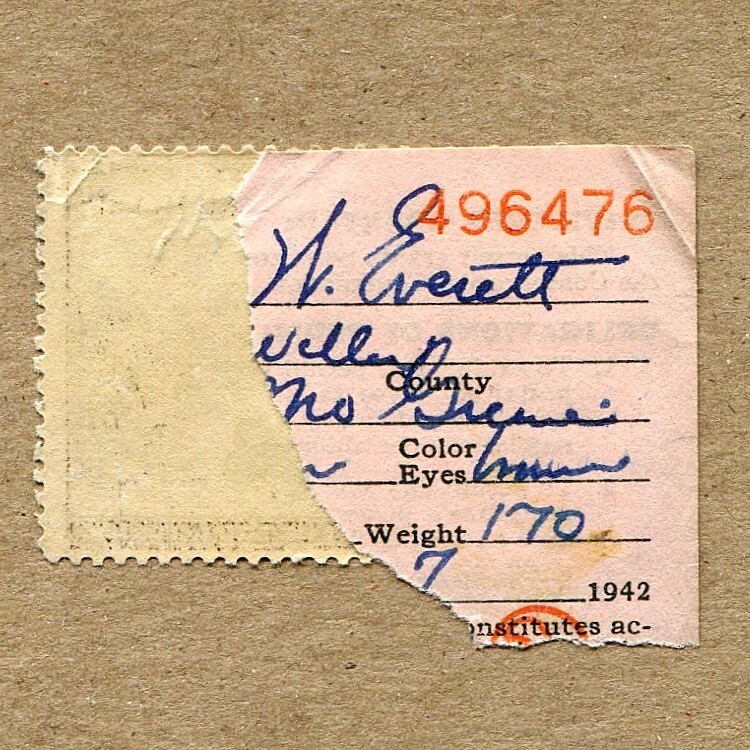 496476
W. Everett
County
Mo Greene
Color
Eyes brown
Weight 170
7
1942
onstitutes ac-